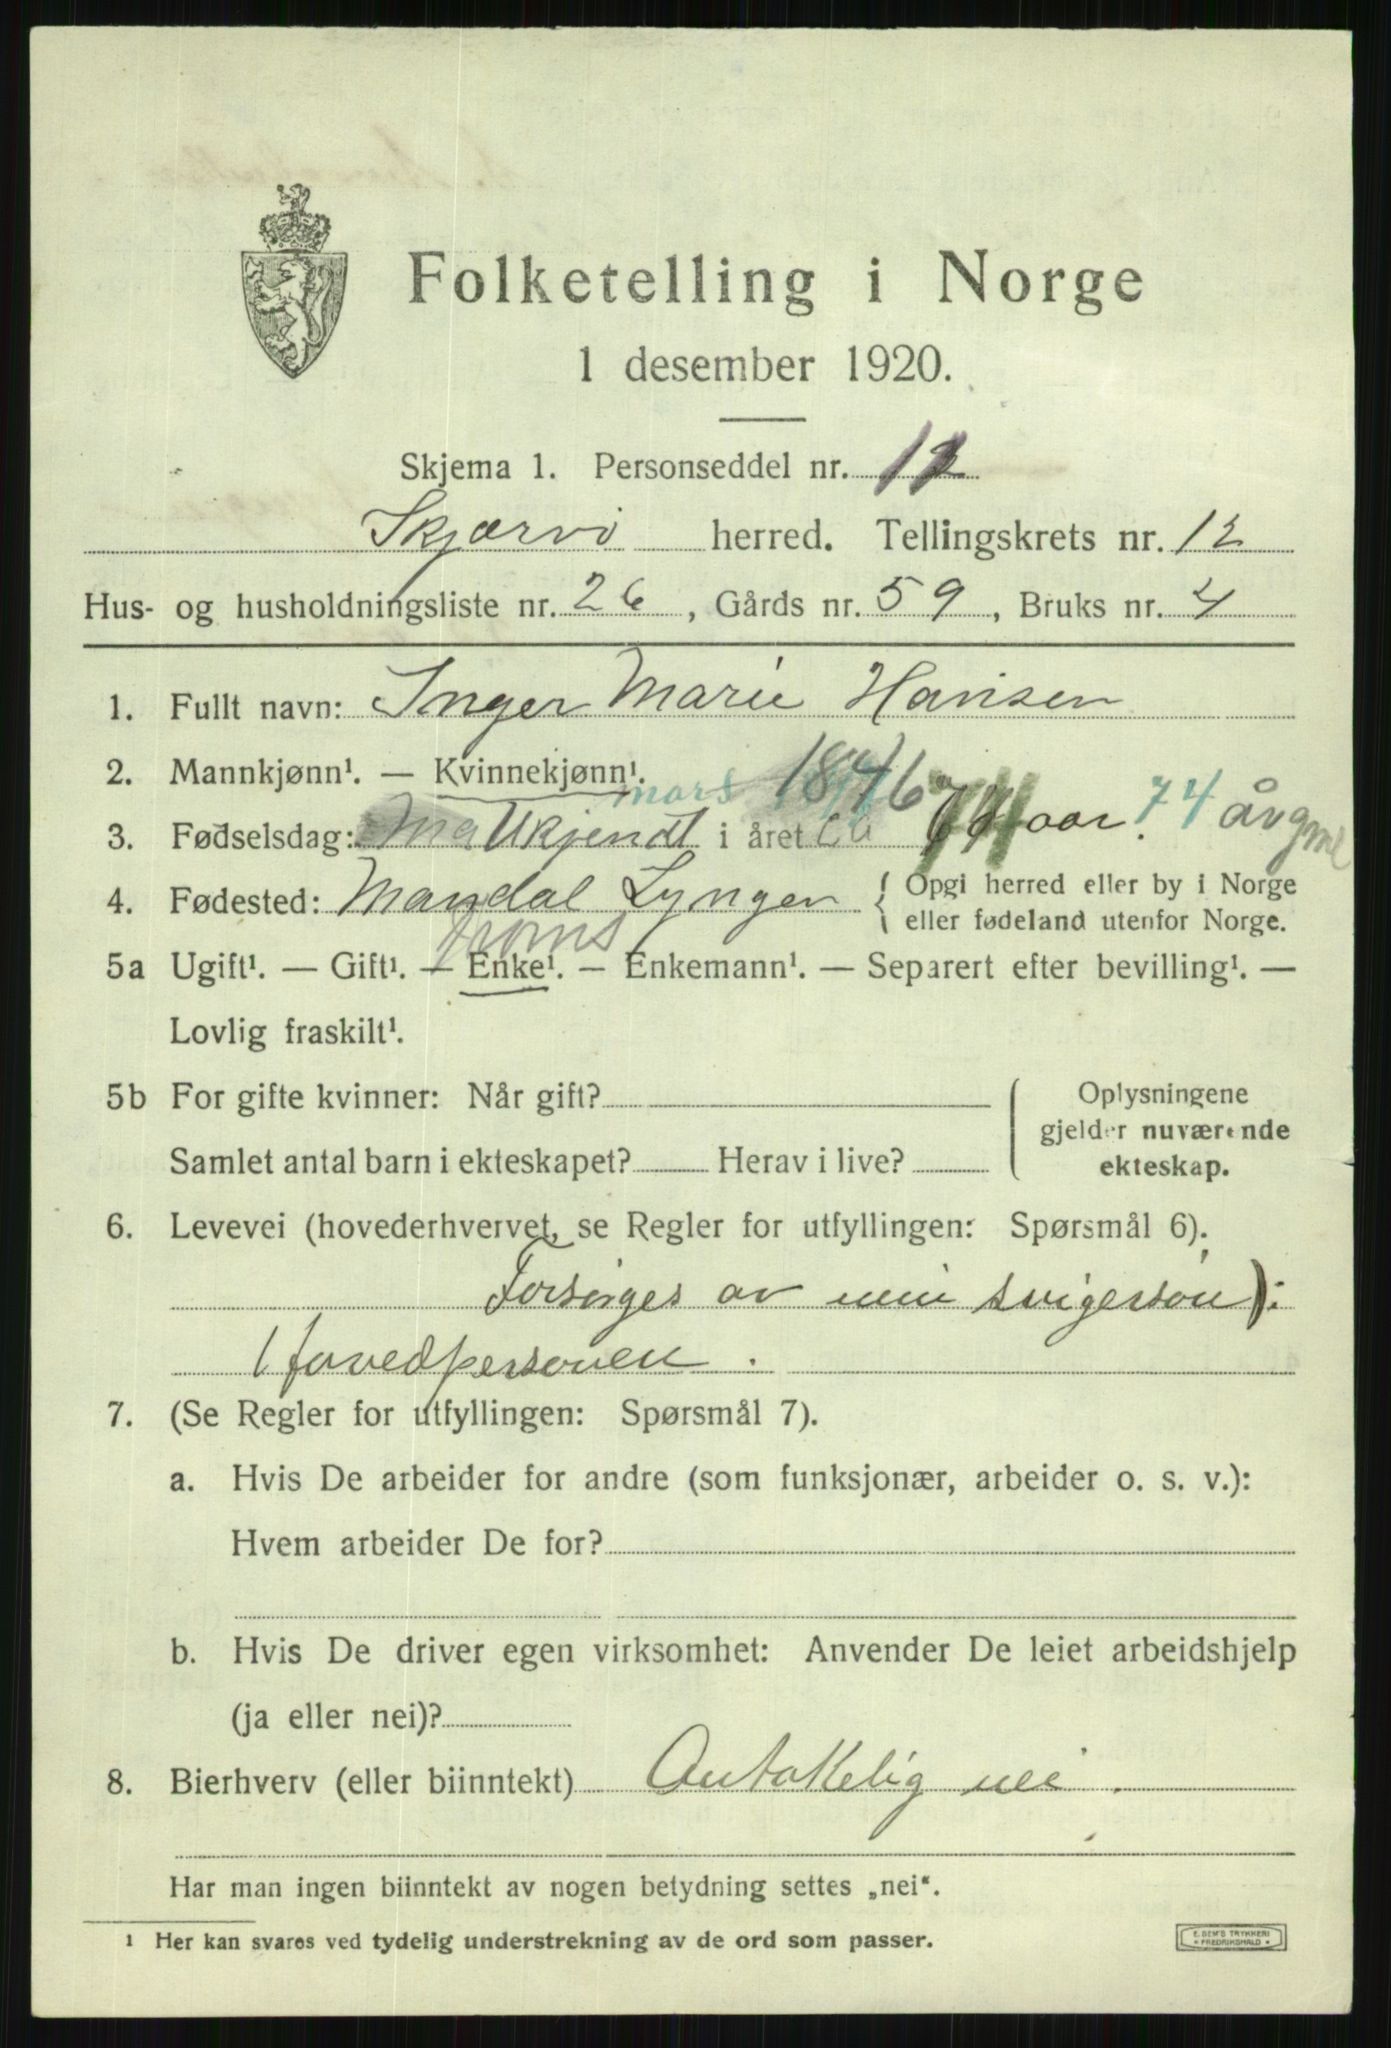 Folketelling i Norge
1 desember 1920.
Skjema 1. Personseddel nr. 12
Skjærvø herred. Tellingskrets nr. 12
Hus- og husholdningsliste nr. 26, Gårds nr. 59, Bruks nr. 4
1. Fullt navn: Inger Marie Hansen
2. Mannkjønn¹. — Kvinnekjønn¹.
mars 1846
3. Fødselsdag: Ukjendt i året ca 74 aar. 74 år
4. Fødested: Mandal Lyngen { Opgi herred eller by i Norge
eller fødeland utenfor Norge.
Troms
5a Ugift¹. — Gift¹. — Enke¹. — Enkemann¹. — Separert efter bevilling¹. —
Lovlig fraskilt¹.
5b For gifte kvinner: Når gift?
Samlet antal barn i ekteskapet? Herav i live?
( Oplysningene
gjelder nuværende
ekteskap.
6. Levevei (hovederhvervet, se Regler for utfyllingen: Spørsmål 6).
Forsørges av min svigersøn):
(hovedpersonen.
7. (Se Regler for utfyllingen: Spørsmål 7).
a. Hvis De arbeider for andre (som funksjonær, arbeider o. s. v.):
Hvem arbeider De for?
b. Hvis De driver egen virksomhet: Anvender De leiet arbeidshjelp
(ja eller nei)?
8. Bierhverv (eller biinntekt) Antakelig nei.
Har man ingen biinntekt av nogen betydning settes „nei“.
¹ Her kan svares ved tydelig understrekning av de ord som passer.
E. SEM'S TRYKKERI
• FREDRIKSHALD •